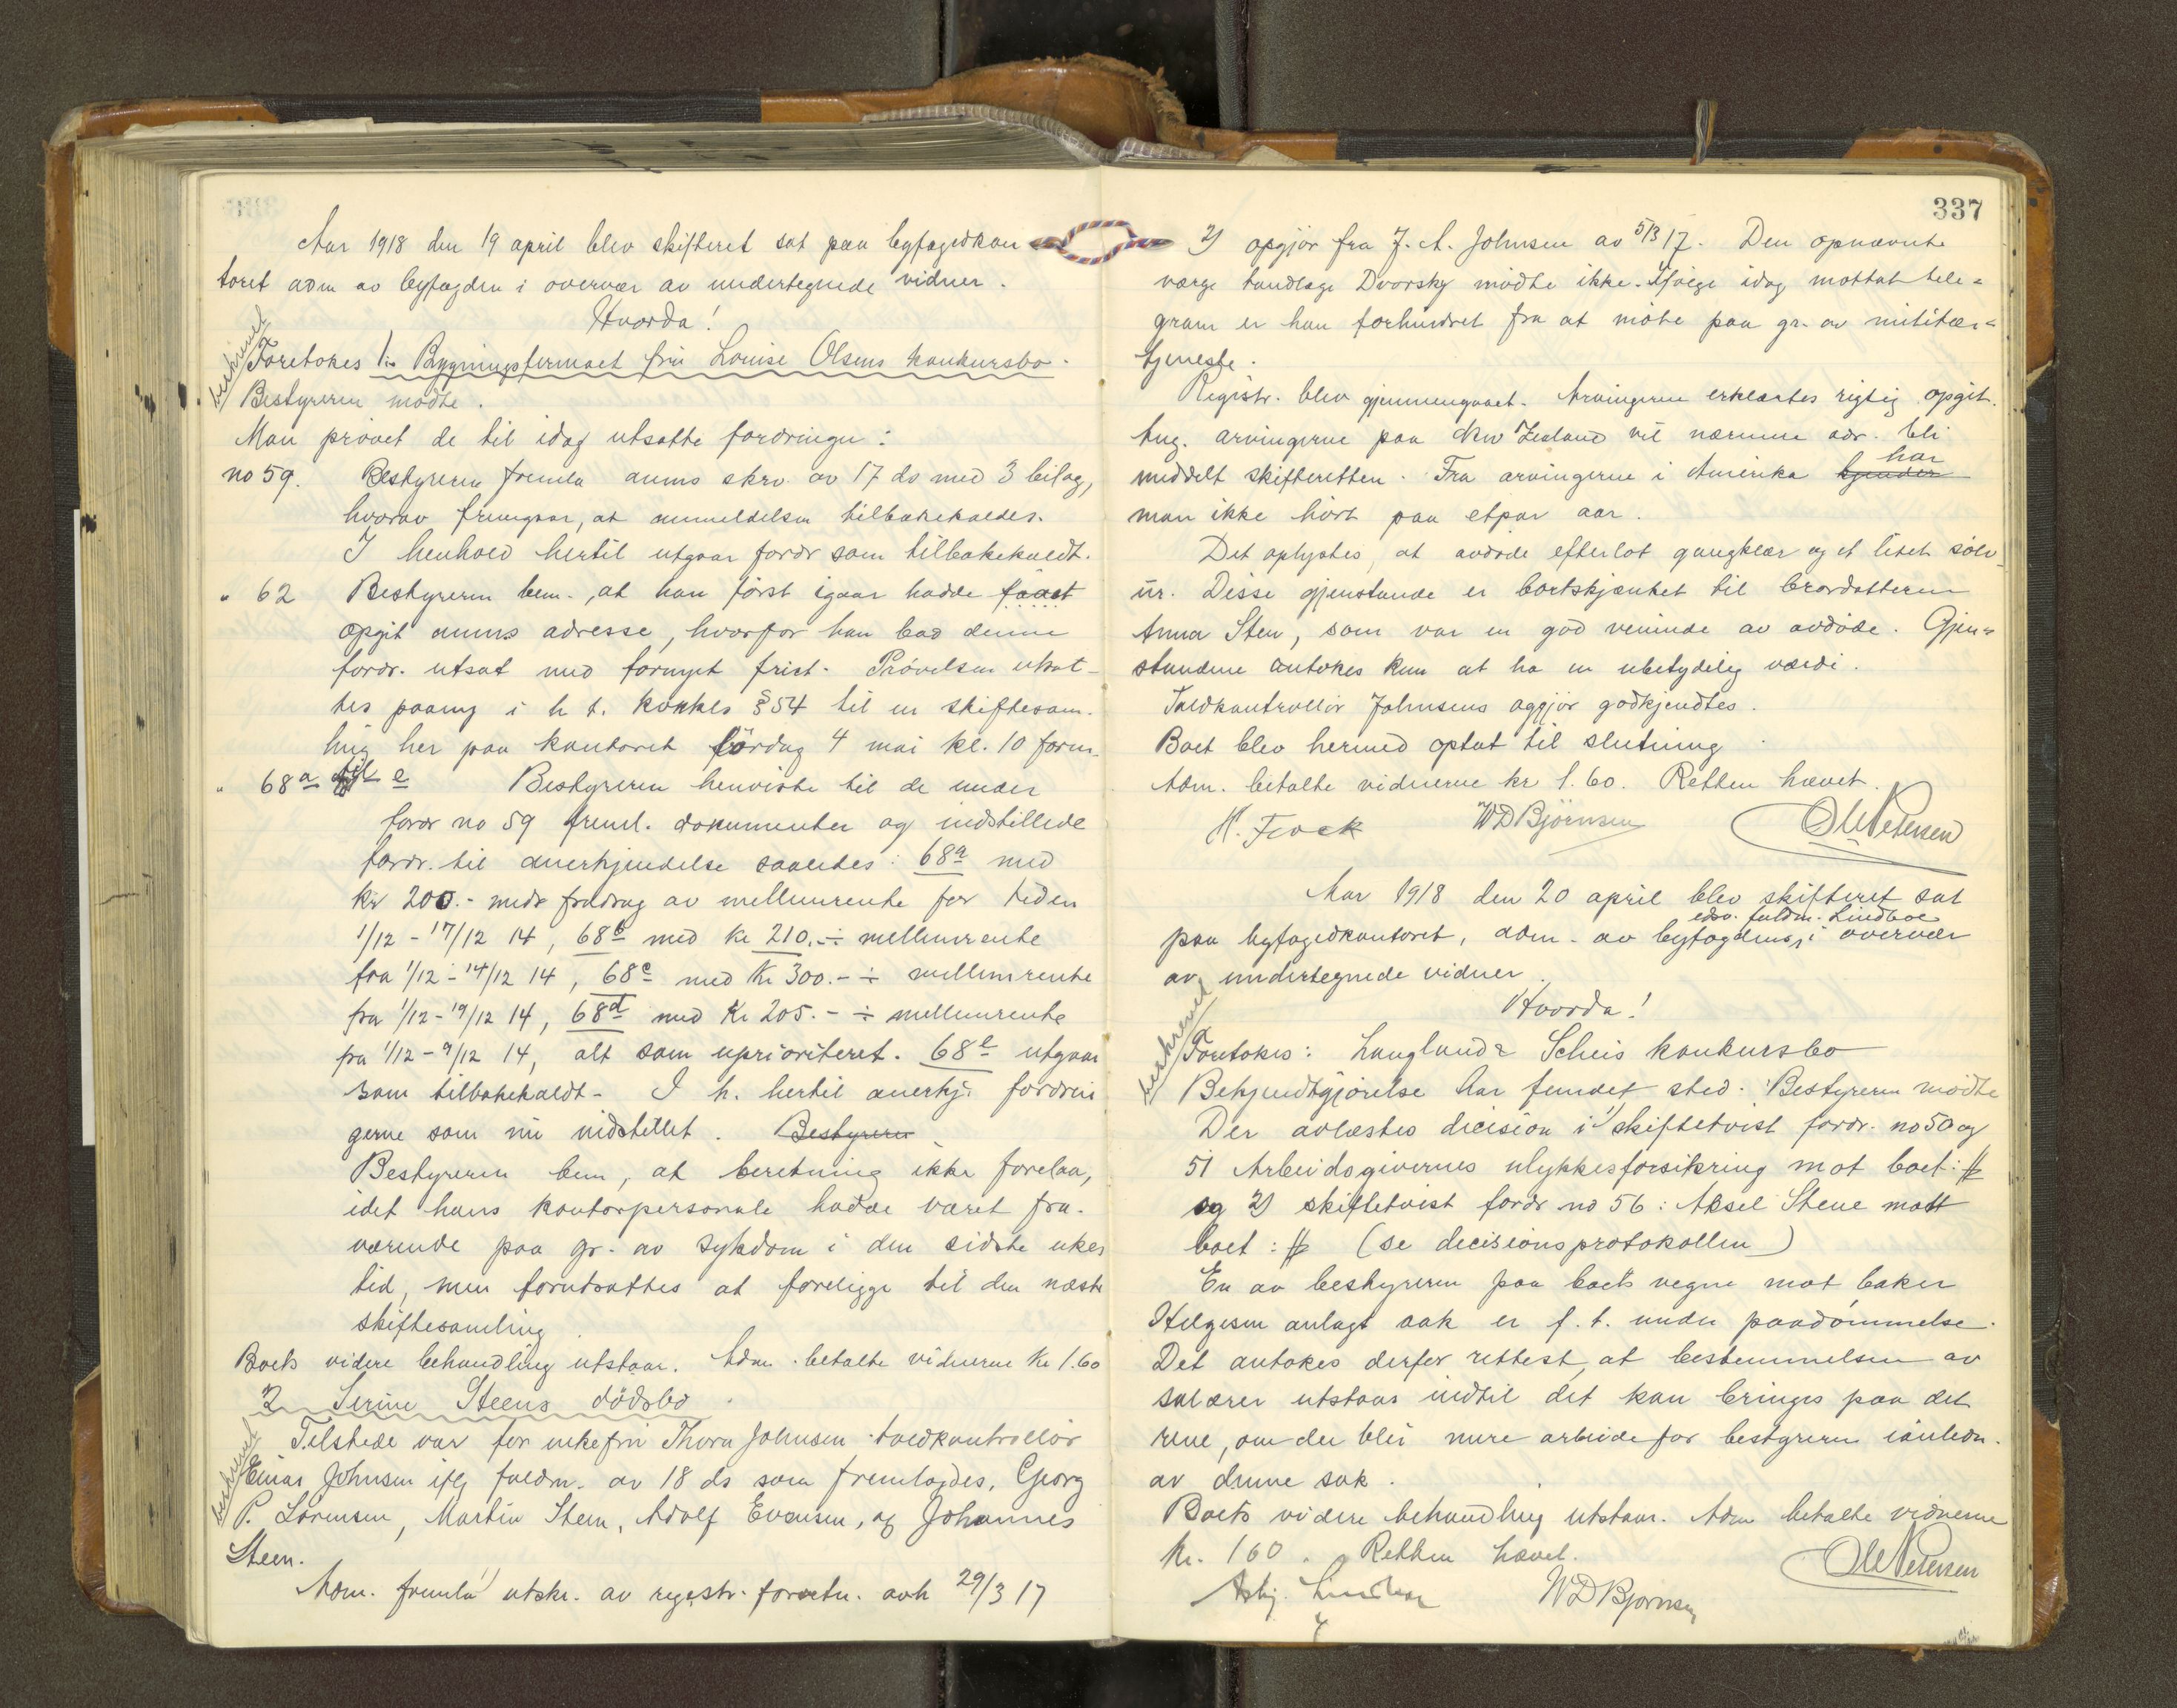 Aar 1918 den 19 april blev skifteret sat paa byfogedkon
toret adm av byfogden i overvær av undertegnede vidner.
Hvorda!
beskrevet
Foretokes 1. Bygningsfirmaet fru Louise Olsens konkursbo.
Bestyreren mødte.
Man prøvet de til idag utsatte fordringer:
no 59. Bestyreren fremla anms skrv. av 17 ds med 3 bilag,
hvorav fremgaar, at anmeldelsen tilbakekaldes.
I henhold hertil utgaar fordr som tilbakekaldt.
" 62 Bestyreren bem., at han først igaar hadde faaet
opgit anms adresse, hvorfor han bad denne
fordr. utsat med fornyet frist. Prøvelsen utsat-
tes paany i h. t. konkls § 54 til en skiftesam-
ling her paa kontoret lördag 4 mai kl. 10 form.
" 68a til e Bestyreren henviste til de under
fordr no 59 freml. dokumenter og indstillede
fordr. til anerkjendelse saaledes: 68a med
kr 200.- med fradrag av mellemrente for tiden
1/12 - 17/12 14, 68b med kr 210.- ÷ mellemrente
fra 1/12 - 14/12 14, 68c med Kr 300.- ÷ mellemrente
fra 1/12 - 19/12 14, 68d med Kr 205.- ÷ mellemrente
fra 1/12 - 9/12 14, alt som uprioriteret. 68e utgaar
som tilbakekaldt. I h. hertil anerkj. fordrin
gerne som nu indstillet. Bestyreren
Bestyreren bem, at beretning ikke forelaa,
idet hans kontorpersonale hadde været fra-
værende paa gr. av sykdom i den sidste ukes
tid, men forutsattes at foreligge til den næste
skiftesamling.
Boets videre behandling utstaar. Adm. betalte vidnerne kr 1.60
2 Serine Steens dödsbo.
beskrevet
Tilstede var for enkefru Thora Johnsen toldkontrollör
Einar Johnsen iflg fuldm. av 18 ds som fremlagdes, Georg
P. Sörensen, Martin Steen, Adolf Evensen, og Johannes
Steen.
Adm. fremla 1) utskr. av registr. forretn. avh 29/3 17
337
2) opgjör fra J. A. Johnsen av 5/3 17. Den opnævnte
værge tandlæge Dvorsky mødte ikke. Ifölge idag mottat tele=
gram er han forhindret fra at möte paa gr. av militær=
tjeneste.
Registr. blev gjennemgaaet. Arvingerne erklærtes rigtig opgit.
Ang. arvingerne paa New Zealand vil nærmere adr. bli
meddelt skifteretten. Fra arvingerne i Amerika kjender har
man ikke hört paa etpar aar.
Det oplystes, at avdøde efterlot gangklær og et litet sölv
ur. Disse gjenstande er bortskjænket til brordatteren
Anna Sten, som var en god veninde av avdöde. Gjen=
standene antokes kun at ha en ubetydelig værdi.
Toldkontrollör Johnsens opgjör godkjendtes.
Boet blev hermed optat til slutning.
Adm. betalte vidnerne kr 1.60. Retten hævet.
WDBjörnsen
Aar 1918 den 20 april blev skifteret sat
paa byfogedkontoret, adm. av byfogdens edsv. fuldm. Lindboe i overvær
av undertegnede vidner.
Hvorda!
beskrevet
Foretokes: Langland & Scheis konkursbo
Bekjendtgjörelse har fundet sted. Bestyreren mødte
Der avlæstes decision i 1) skiftetvist fordr. no 50 og
51 Arbeidsgivernes ulykkesforsikring mot boet: #
og 2) skiftetvist fordr no 56: Aksel Stene mott
boet: # (se decisionsprotokollen)
En av bestyreren paa boets vegne mot baker
Helgesen anlagt sak er f. t. under paadömmelse.
Det antokes derfor rettest, at bestemmelsen av
salærer utstaar indtil det kan bringes paa det
rene, om der blir mere arbeide for bestyreren i anledn.
av denne sak.
Boets videre behandling utstaar. Adm betalte vidnerne
kr. 1 60. Retten hævet.
WDBjørnsen